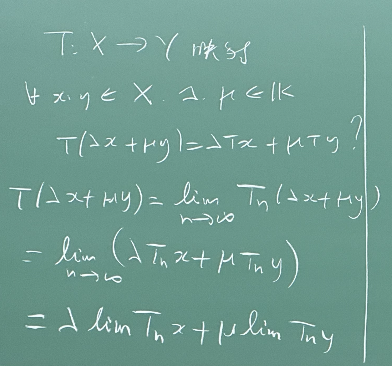 T: X → Y 映射
∀ x.y ∈ X. λ. μ ∈ 𝕂
T(λx+μy)=λTx+μTy?
T(λx+μy)= lim n→∞ Tn(λx+μy)
= lim n→∞ (λTnx+μTny)
= λ lim Tnx+μ lim Tny